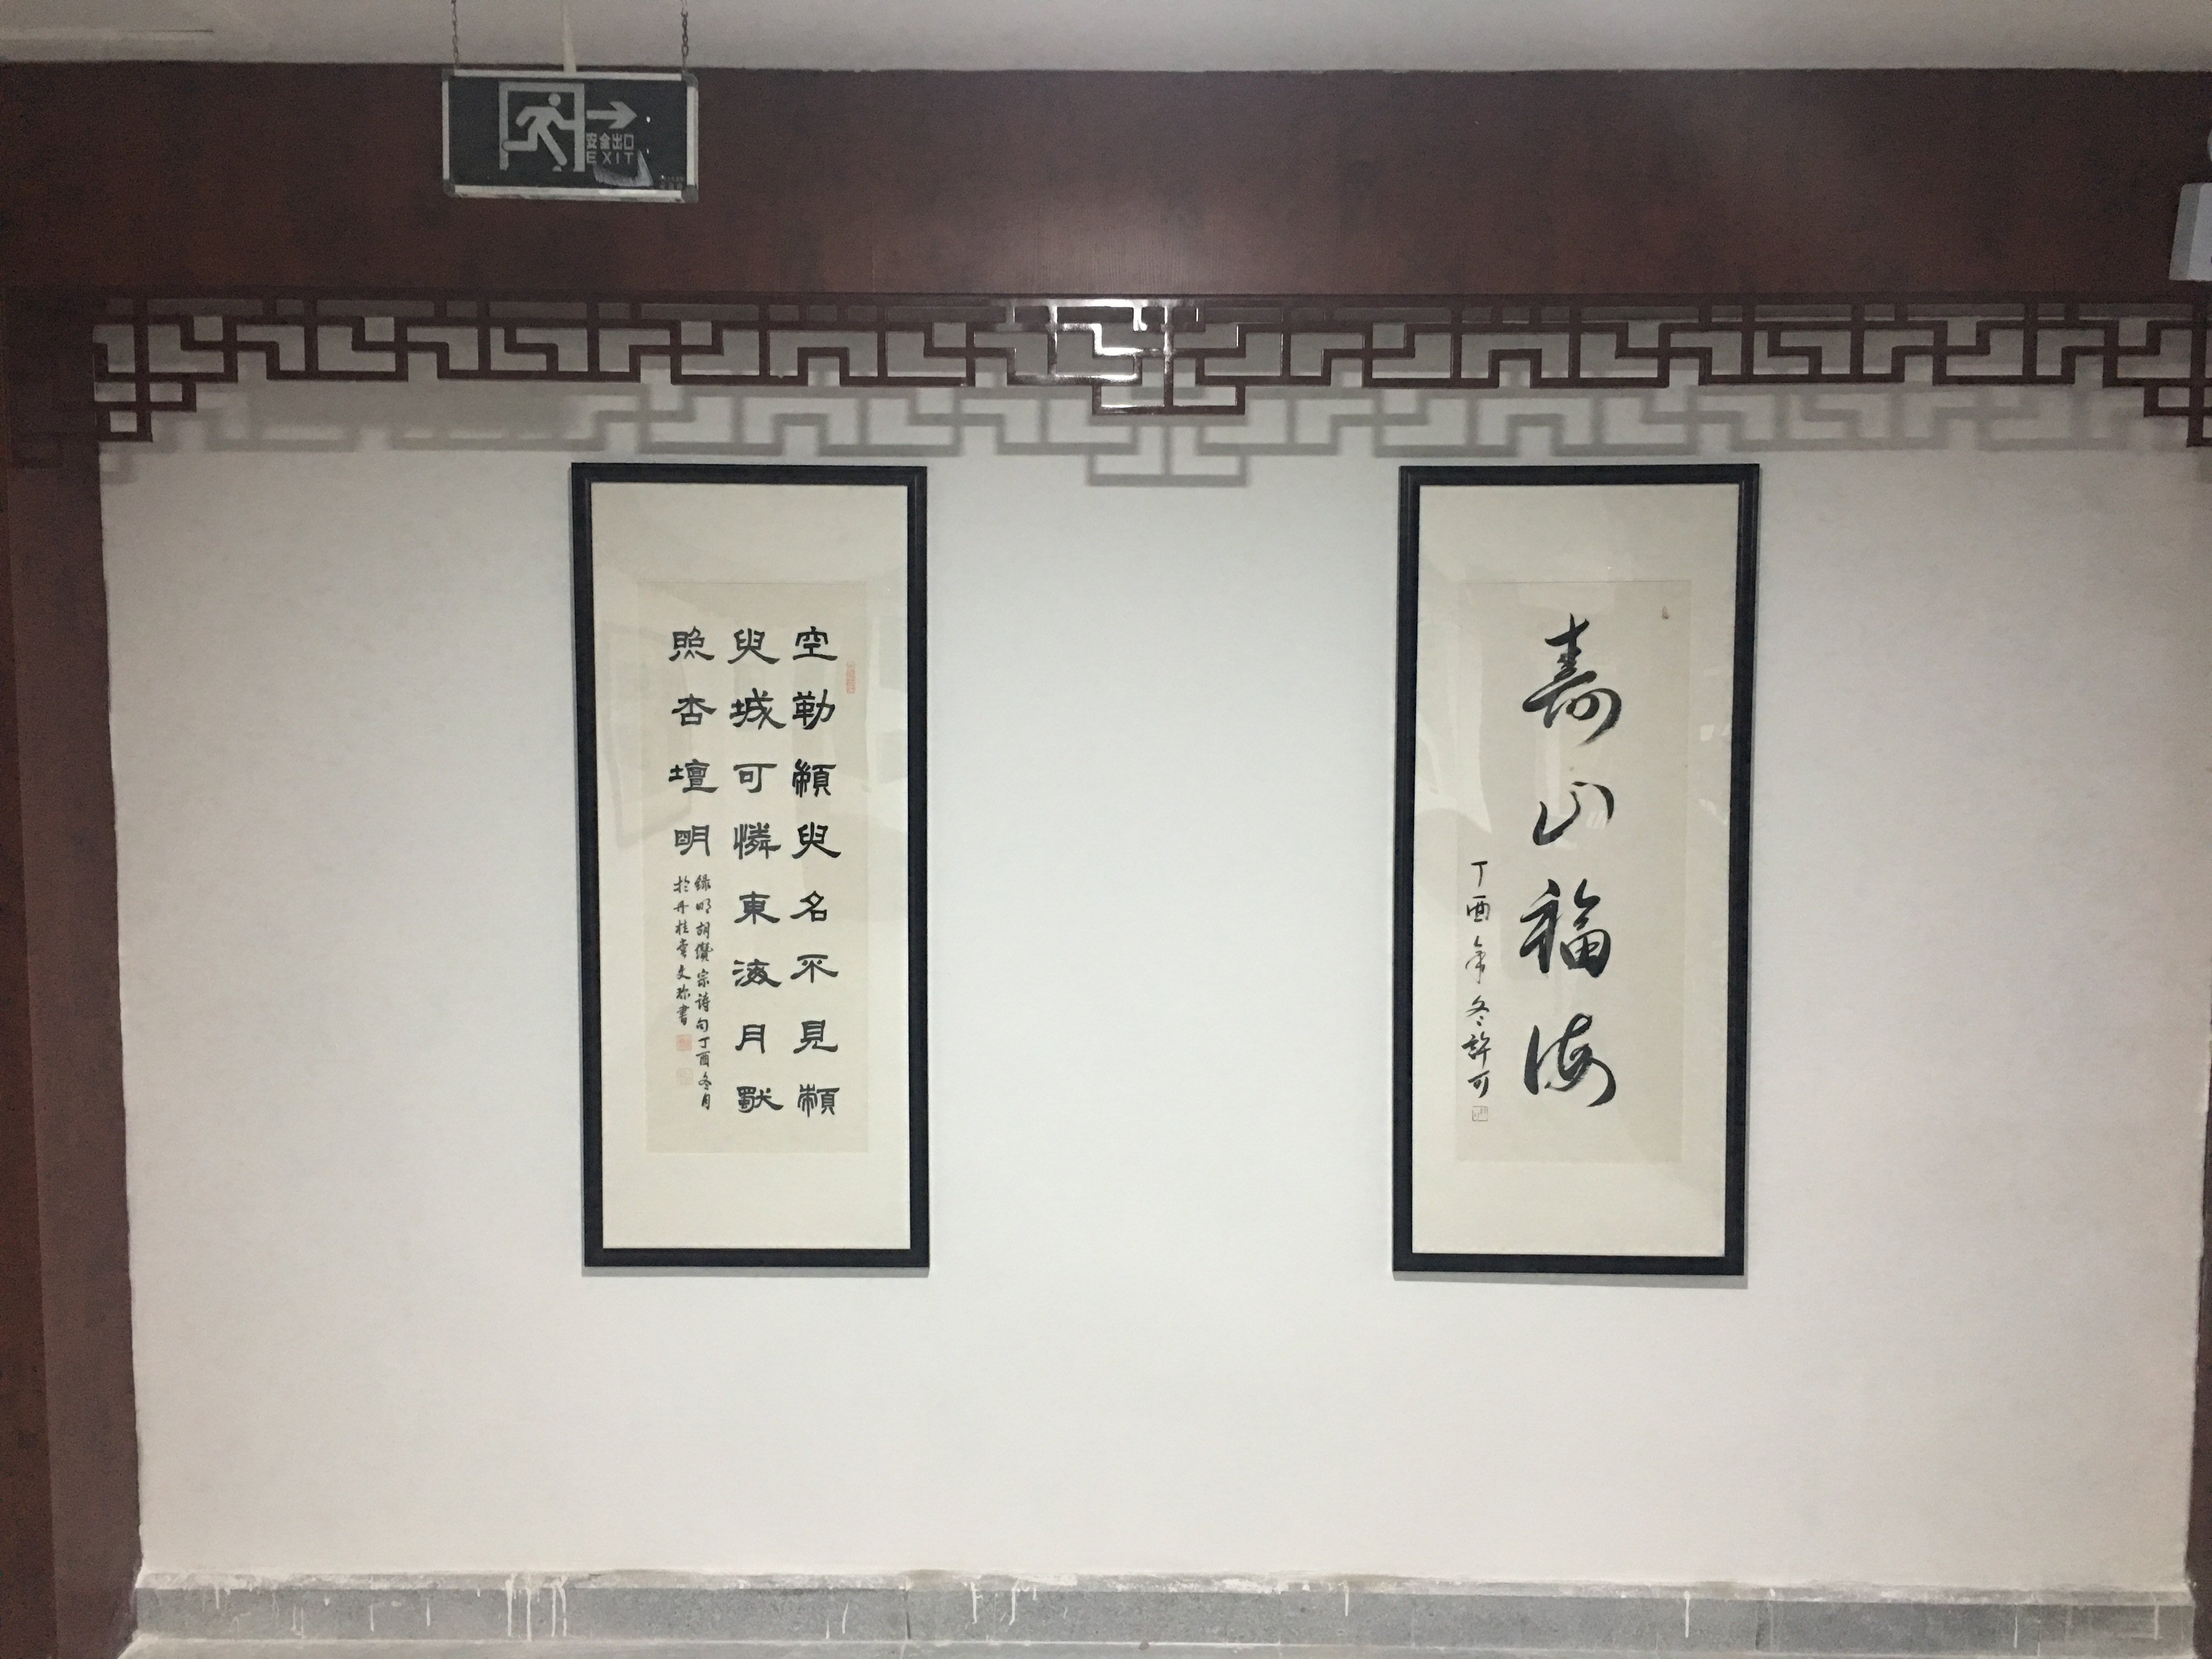 安全出口
EXIT
壽山福海
丁酉年冬許可
空勒顏臾名不見顓
臾城可憐東海月獸
照杏壇明
錄明胡纘宗詩句丁酉冬月
於丹桂堂文珍書